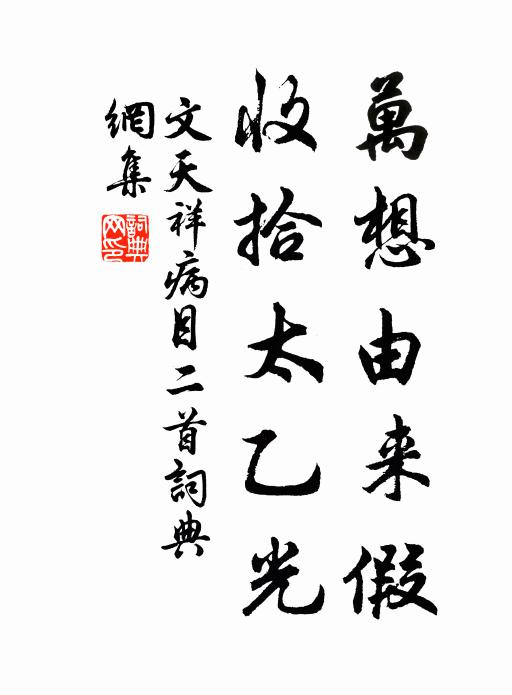 萬想由来假
收拾太乙光
文天祥病目二首詞典
網集
詞典網印